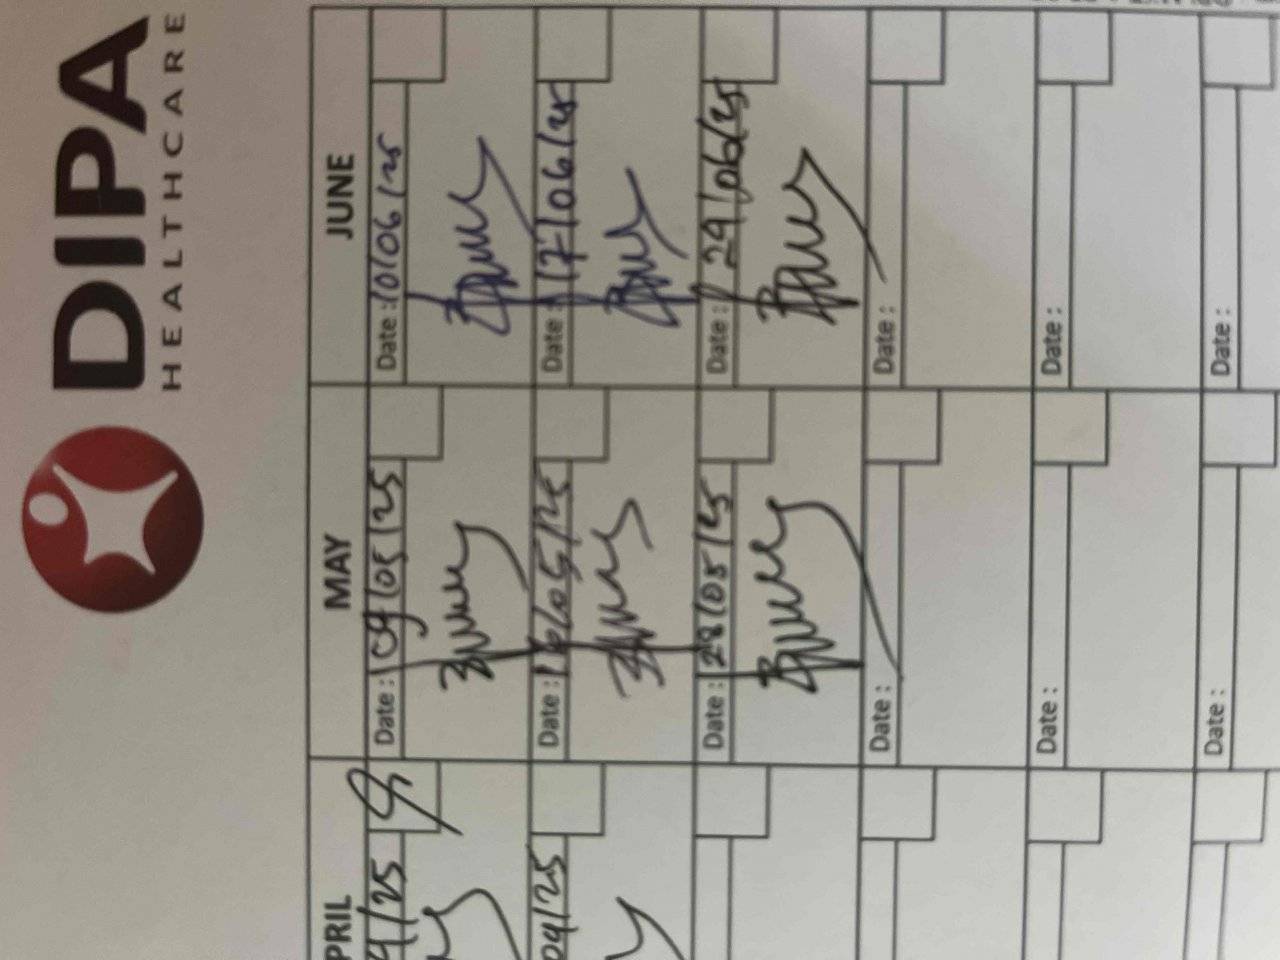 DIPA
HEALTHCARE
PRIL MAY JUNE
4/25 Date : 09/05/25 Date : 10/06/25
04/25 Date : 16/05/25 Date : 17/06/25
Date : 28/05/25 Date : 29/06/25
Date : Date :
Date : Date :
Date : Date :